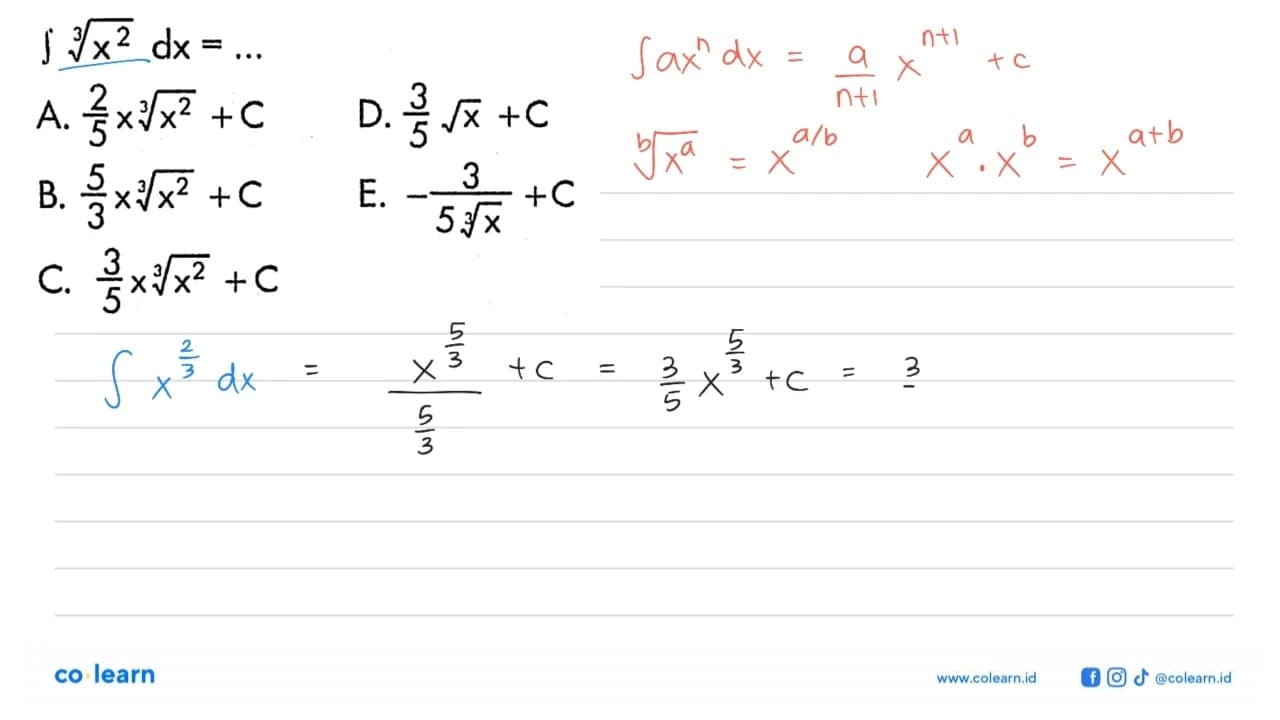 ∫ ∛x² dx = ...
A. 2/5 x∛x² + C
D. 3/5 √x + C
B. 5/3 x∛x² + C
E. -3/(5∛x) + C
C. 3/5 x∛x² + C
∫axⁿ dx = a/(n+1) x^(n+1) + c
ᵇ√xᵃ = x^(a/b)
x^a . x^b = x^(a+b)
∫ x^(2/3) dx = x^(5/3)/(5/3) + c = 3/5 x^(5/3) + c = 3
co learn
www.colearn.id
@colearn.id